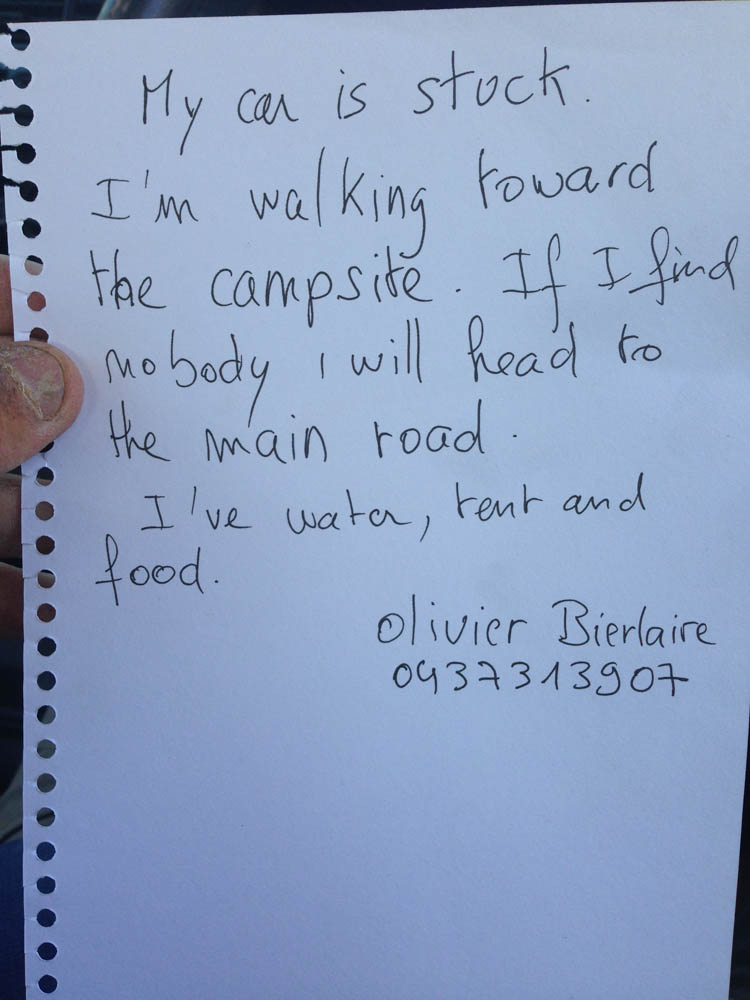 My car is stuck.
I'm walking toward
the campsite. If I find
nobody I will head to
the main road.
I've water, tent and
food.
Olivier Bierlaire
0437313907